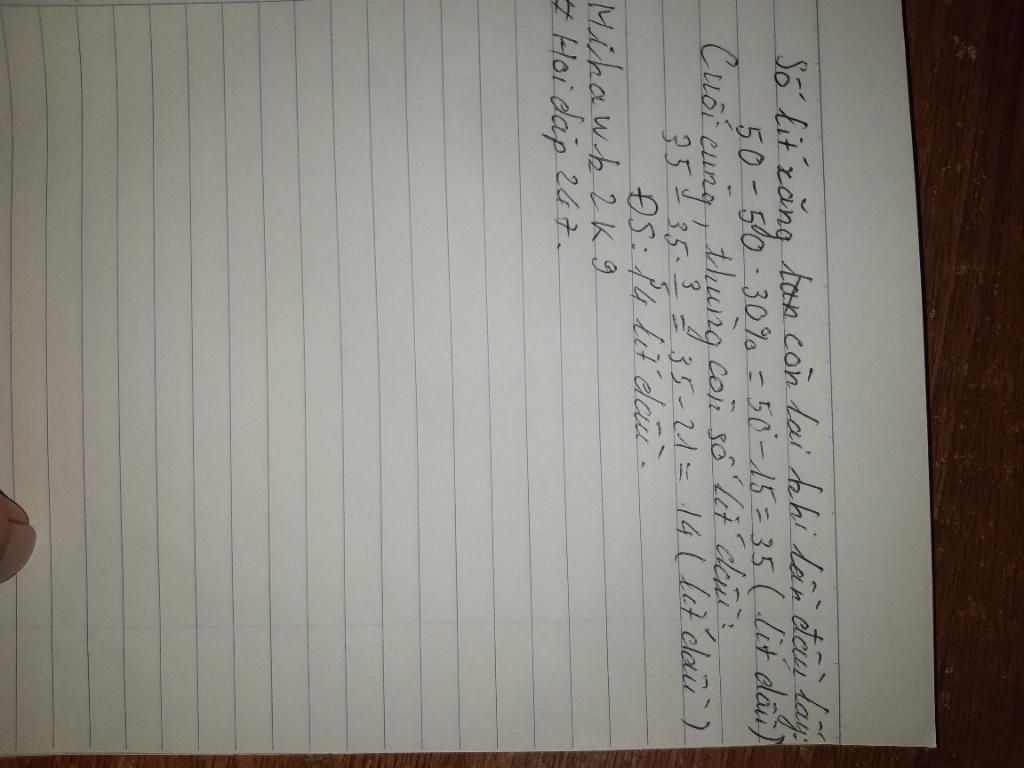 Số lít xăng còn lại khi lần đầu lấy:
50 - 50 . 30% = 50 - 15 = 35 ( lít dầu )
Cuối cùng, thùng còn số lít dầu:
35 - 35 . 3/5 = 35 - 21 = 14 ( lít dầu )
ĐS: 14 lít dầu.
Mihawk 2K9
# Hoidap247.